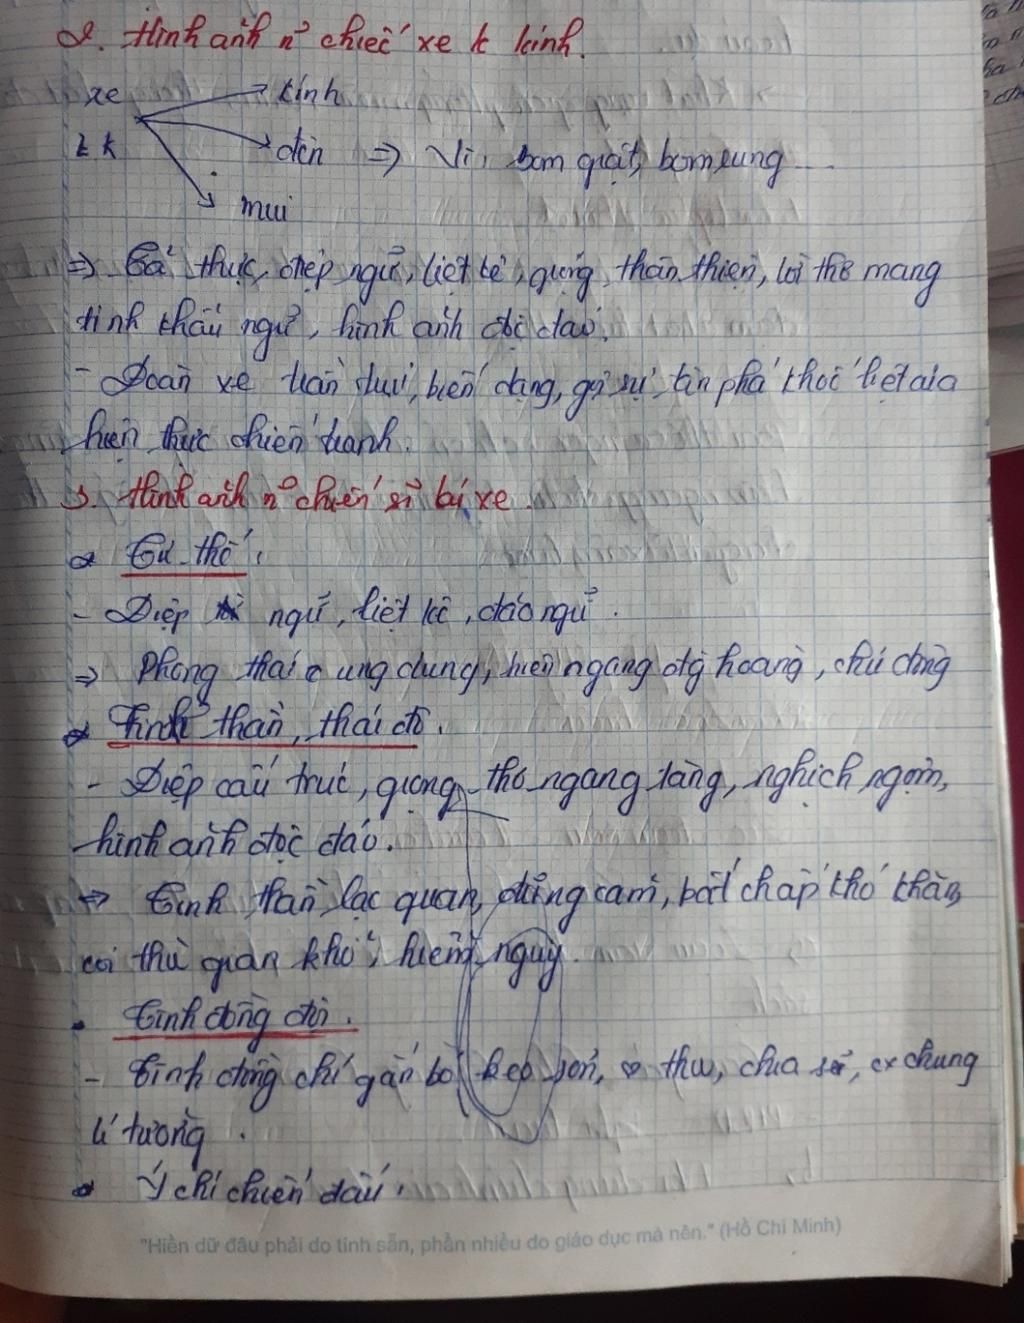 2. Hình ảnh n~ chiếc xe k kính.
xe
kính
k k
đèn => Vì, bom giật, bom rung ...
mui
=> Tả thực, điệp ngữ, liệt kê, giọng thân thiện, lời thơ mang
tính khẩu ngữ, hình ảnh độc đáo.
- Đoàn xe trần trụi, biến dạng, gợi sự tàn phá khốc liệt của
hiện thực chiến tranh.
3. Hình ảnh n~ chiến sĩ lái xe.
* Tư thế.
- Điệp ngữ, liệt kê, đảo ngữ.
=> Phong thái ung dung, hiên ngang đg hoàng, chủ động
* Tinh thần, thái độ.
- Điệp cấu trúc, giọng thơ ngang tàng, nghịch ngợm,
hình ảnh độc đáo.
=> Tinh thần lạc quan, dũng cảm, bất chấp khó khăn,
coi thường gian khổ, hiểm nguy.
* Tình đồng đội.
- Tình đồng chí gắn bó keo sơn, chia sẻ, chung
lí tưởng.
* Ý chí chiến đấu.
"Hiền dữ đâu phải do tính sẵn, phần nhiều do giáo dục mà nên." (Hồ Chí Minh)